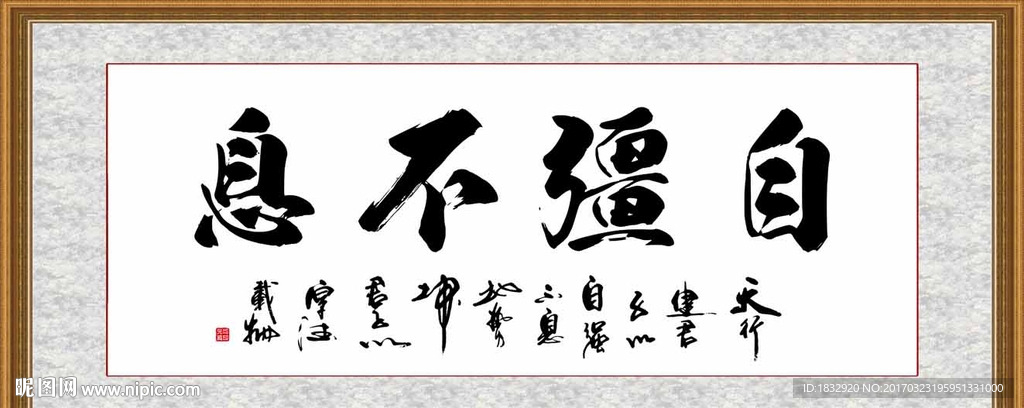 自彊不息
天行
健君
子以
自强
不息
地勢
坤
君子以
厚德
載物
昵图网 www.nipic.com
ID:1832920 NO:20170323195951331000